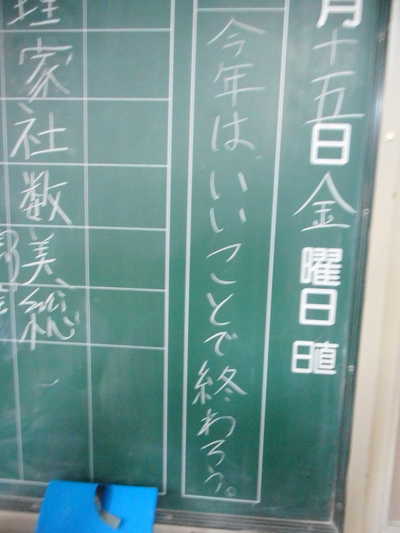 月十五日金曜日
日直
今年はいいことで終わろう。
理
家
社
数
美
総